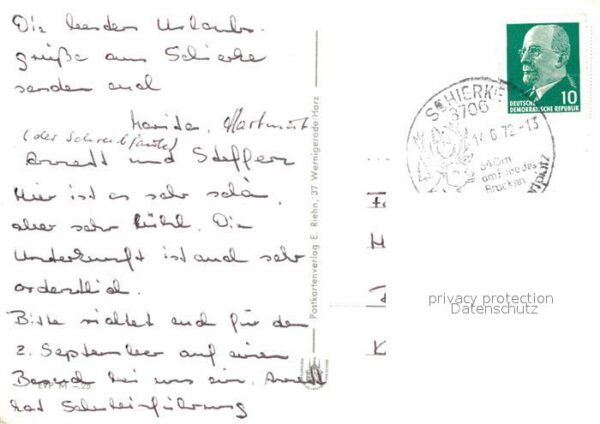 Die besten Urlaubs-
grüße aus Schierke
senden euch
Hartmut
(der Schreibfaule)
Annett und Steffen
Hier ist es sehr schön,
aber sehr kühl. Die
Unterkunft ist auch sehr
ordentlich.
Bitte richtet euch für den
2. September auf einen
Besuch bei uns ein. Annett
hat Schuleinführung
EVP M -,25
Postkartenverlag E. Riehn, 37 Wernigerode-Harz
DEUTSCHE
DEMOKRATISCHE REPUBLIK
10
SCHIERKE
3706
14.6.72-13
640m
am Fuße des
Brocken
privacy protection
Datenschutz